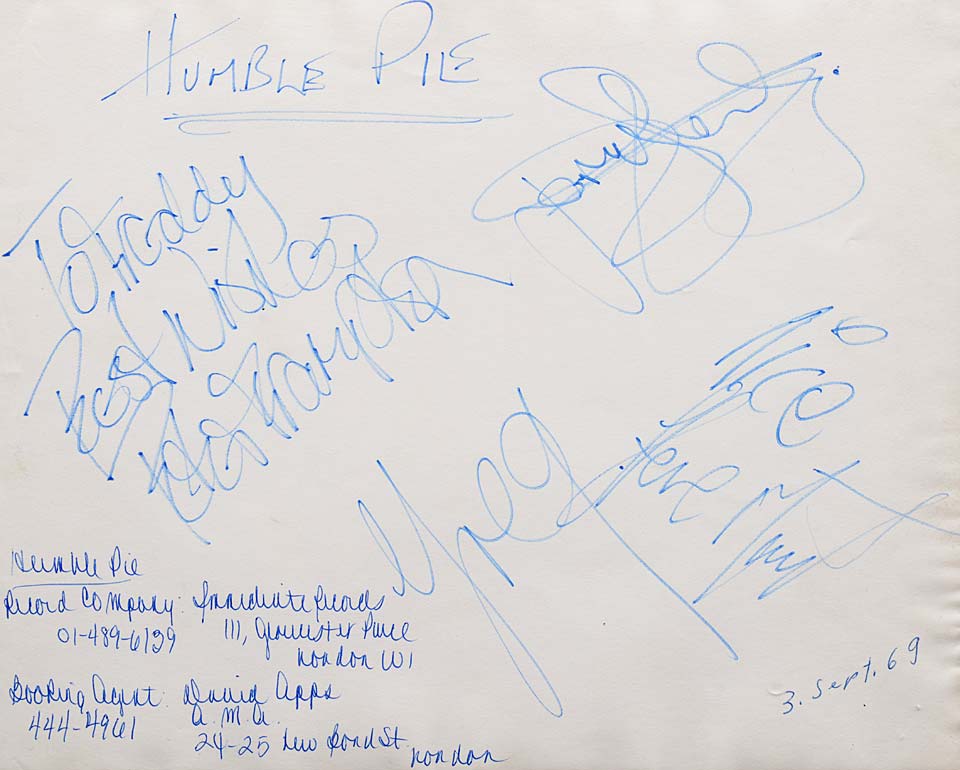 HUMBLE PIE
To Freddy
Best Wishes
Peter Frampton
Greg
Steve Marriott
Humble Pie
Record Company: Immediate Records
01-489-6129
111, Gloucester Place
London W1
Booking Agent: David Apps
444-4961
A.M.A.
24-25 New Bond St.
London
3. Sept. 69